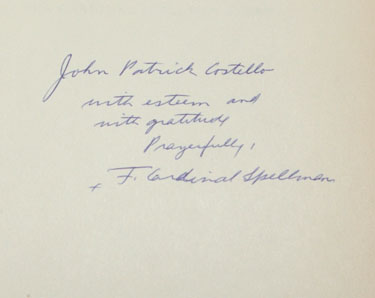 John Patrick Costello
with esteem and
with gratitude
Prayerfully,
+ F. Cardinal Spellman